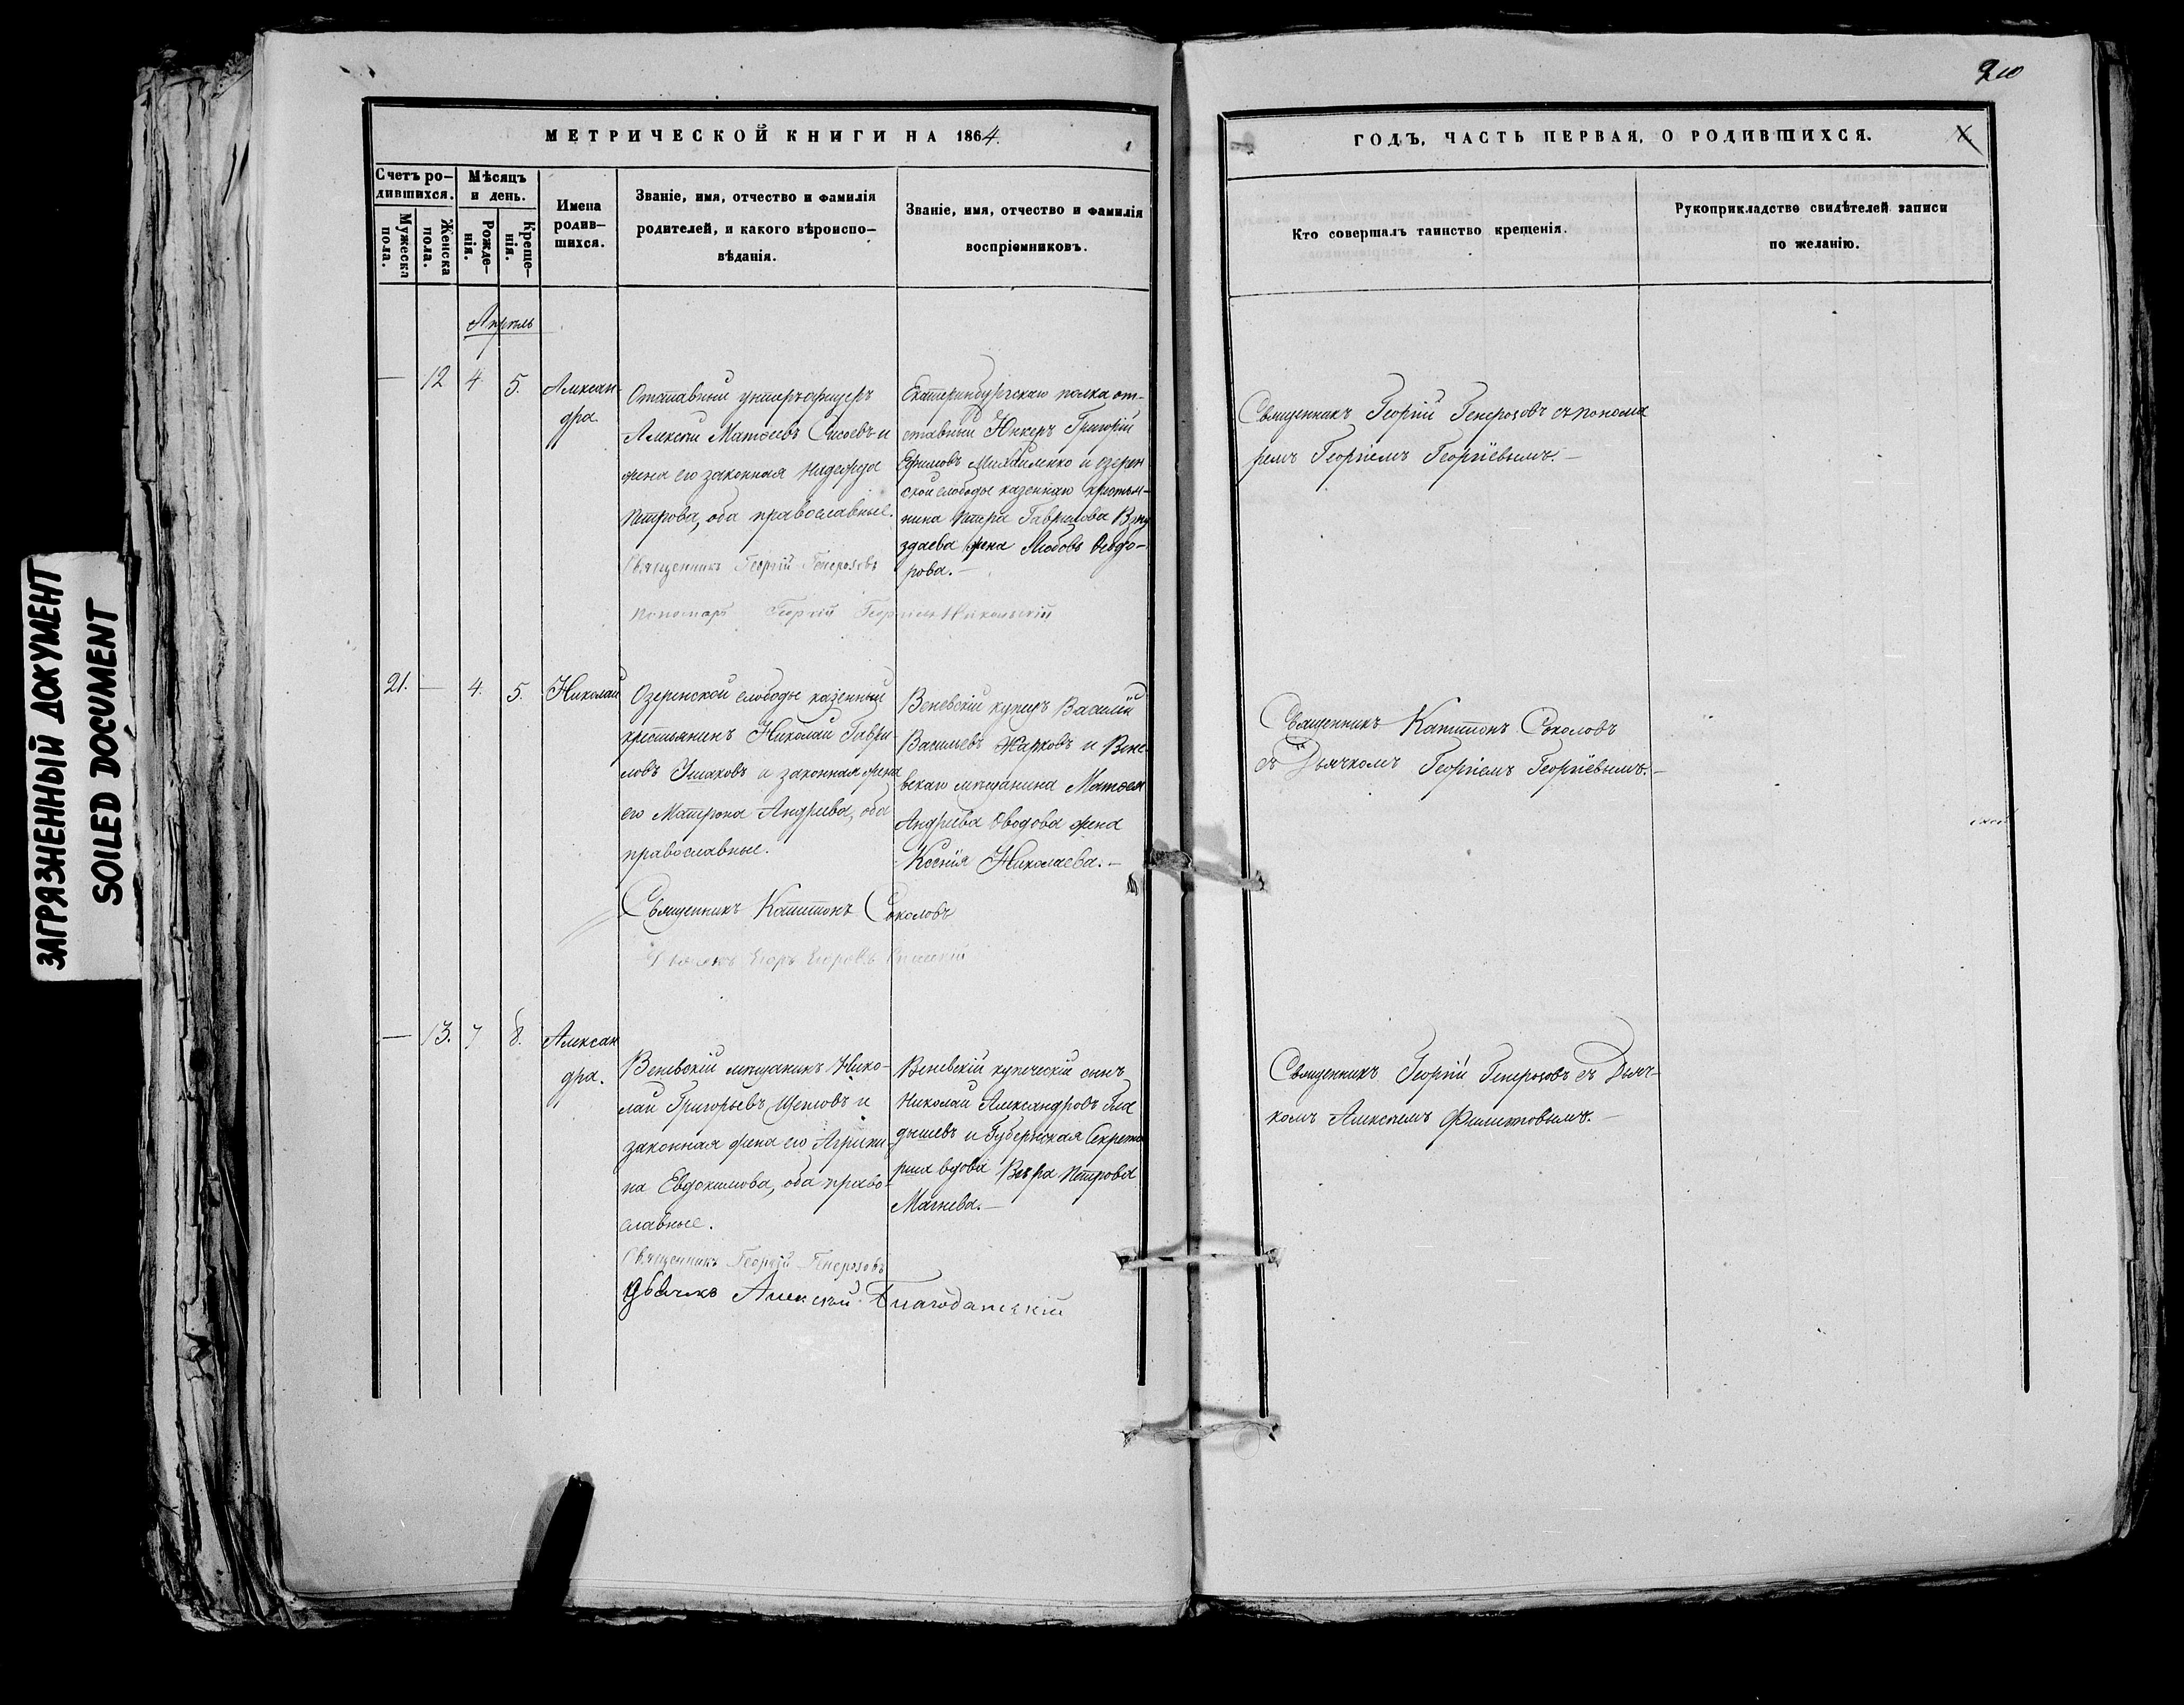 210
МЕТРИЧЕСКОЙ КНИГИ НА 1864.
ГОДЪ, ЧАСТЬ ПЕРВАЯ, О РОДИВШИХСЯ.
Счетъ ро-
дившихся.
Мужеска
пола.
Женска
пола.
Мѣсяцъ
и день.
Рожде-
нія.
Креще-
нія.
Имена
родив-
шихся.
Званіе, имя, отчество и фамилія
родителей, и какого вѣроиспо-
вѣданія.
Званіе, имя, отчество и фамилія
воспріемниковъ.
Кто совершалъ таинство крещенія.
Рукоприкладство свидѣтелей записи
по желанію.
Апрѣль
— 12 4 5.
Алексан-
дра.
Отставный унтеръофицеръ
Алексѣй Матѳеевъ Сысоевъ и
жена его законная Надежда
Петрова, оба православные.
Священникъ Георгій Генерозовъ
Пономарь Георгій Георгіевъ Никольскій
Екатеринбургскаго полка от-
ставный Юнкеръ Григорій
Ефимовъ Михайленко и Озерен
ской слободы казеннаго крестья-
нина Петра Гаврилова
здаева жена Любовь Ѳеодо-
рова.—
Священникъ Георгій Генерозовъ съ понома
ремъ Георгіемъ Георгіевымъ.—
21. — 4. 5. Николай
Озеренской слободы казенный
крестьянинъ Николай Гаври-
ловъ Ушаковъ и законная жена
его Матрона Андреева, оба
православные.
Священникъ Капитонъ Соколовъ
Дьячекъ Егоръ Егоровъ
Веневскій купецъ Василій
Васильевъ Жарковъ и Вене
вскаго мѣщанина Матѳея
Андреева Оводова жена
Ксенія Николаева.—
Священникъ Капитонъ Соколовъ
съ Дьячкомъ Георгіемъ Георгіевымъ.—
— 13. 7 8.
Алексан
дра.
Веневскій мѣщанинъ Нико-
лай Григорьевъ Щегловъ и
законная жена его Агрипи-
на Евдокимова, оба право-
славные.
Священникъ Георгій Генерозовъ
дьячекъ Алексѣй Благодатскій
Веневскій купеческій сынъ
Николай Александровъ Гла
дышевъ и Губернская Секрета
рша вдова Вѣра Петрова
Магнева.—
Священникъ Георгій Генерозовъ съ Дьяч-
комъ Алексѣемъ Филитовымъ.—
ЗАГРЯЗНЕННЫЙ ДОКУМЕНТ
SOILED DOCUMENT